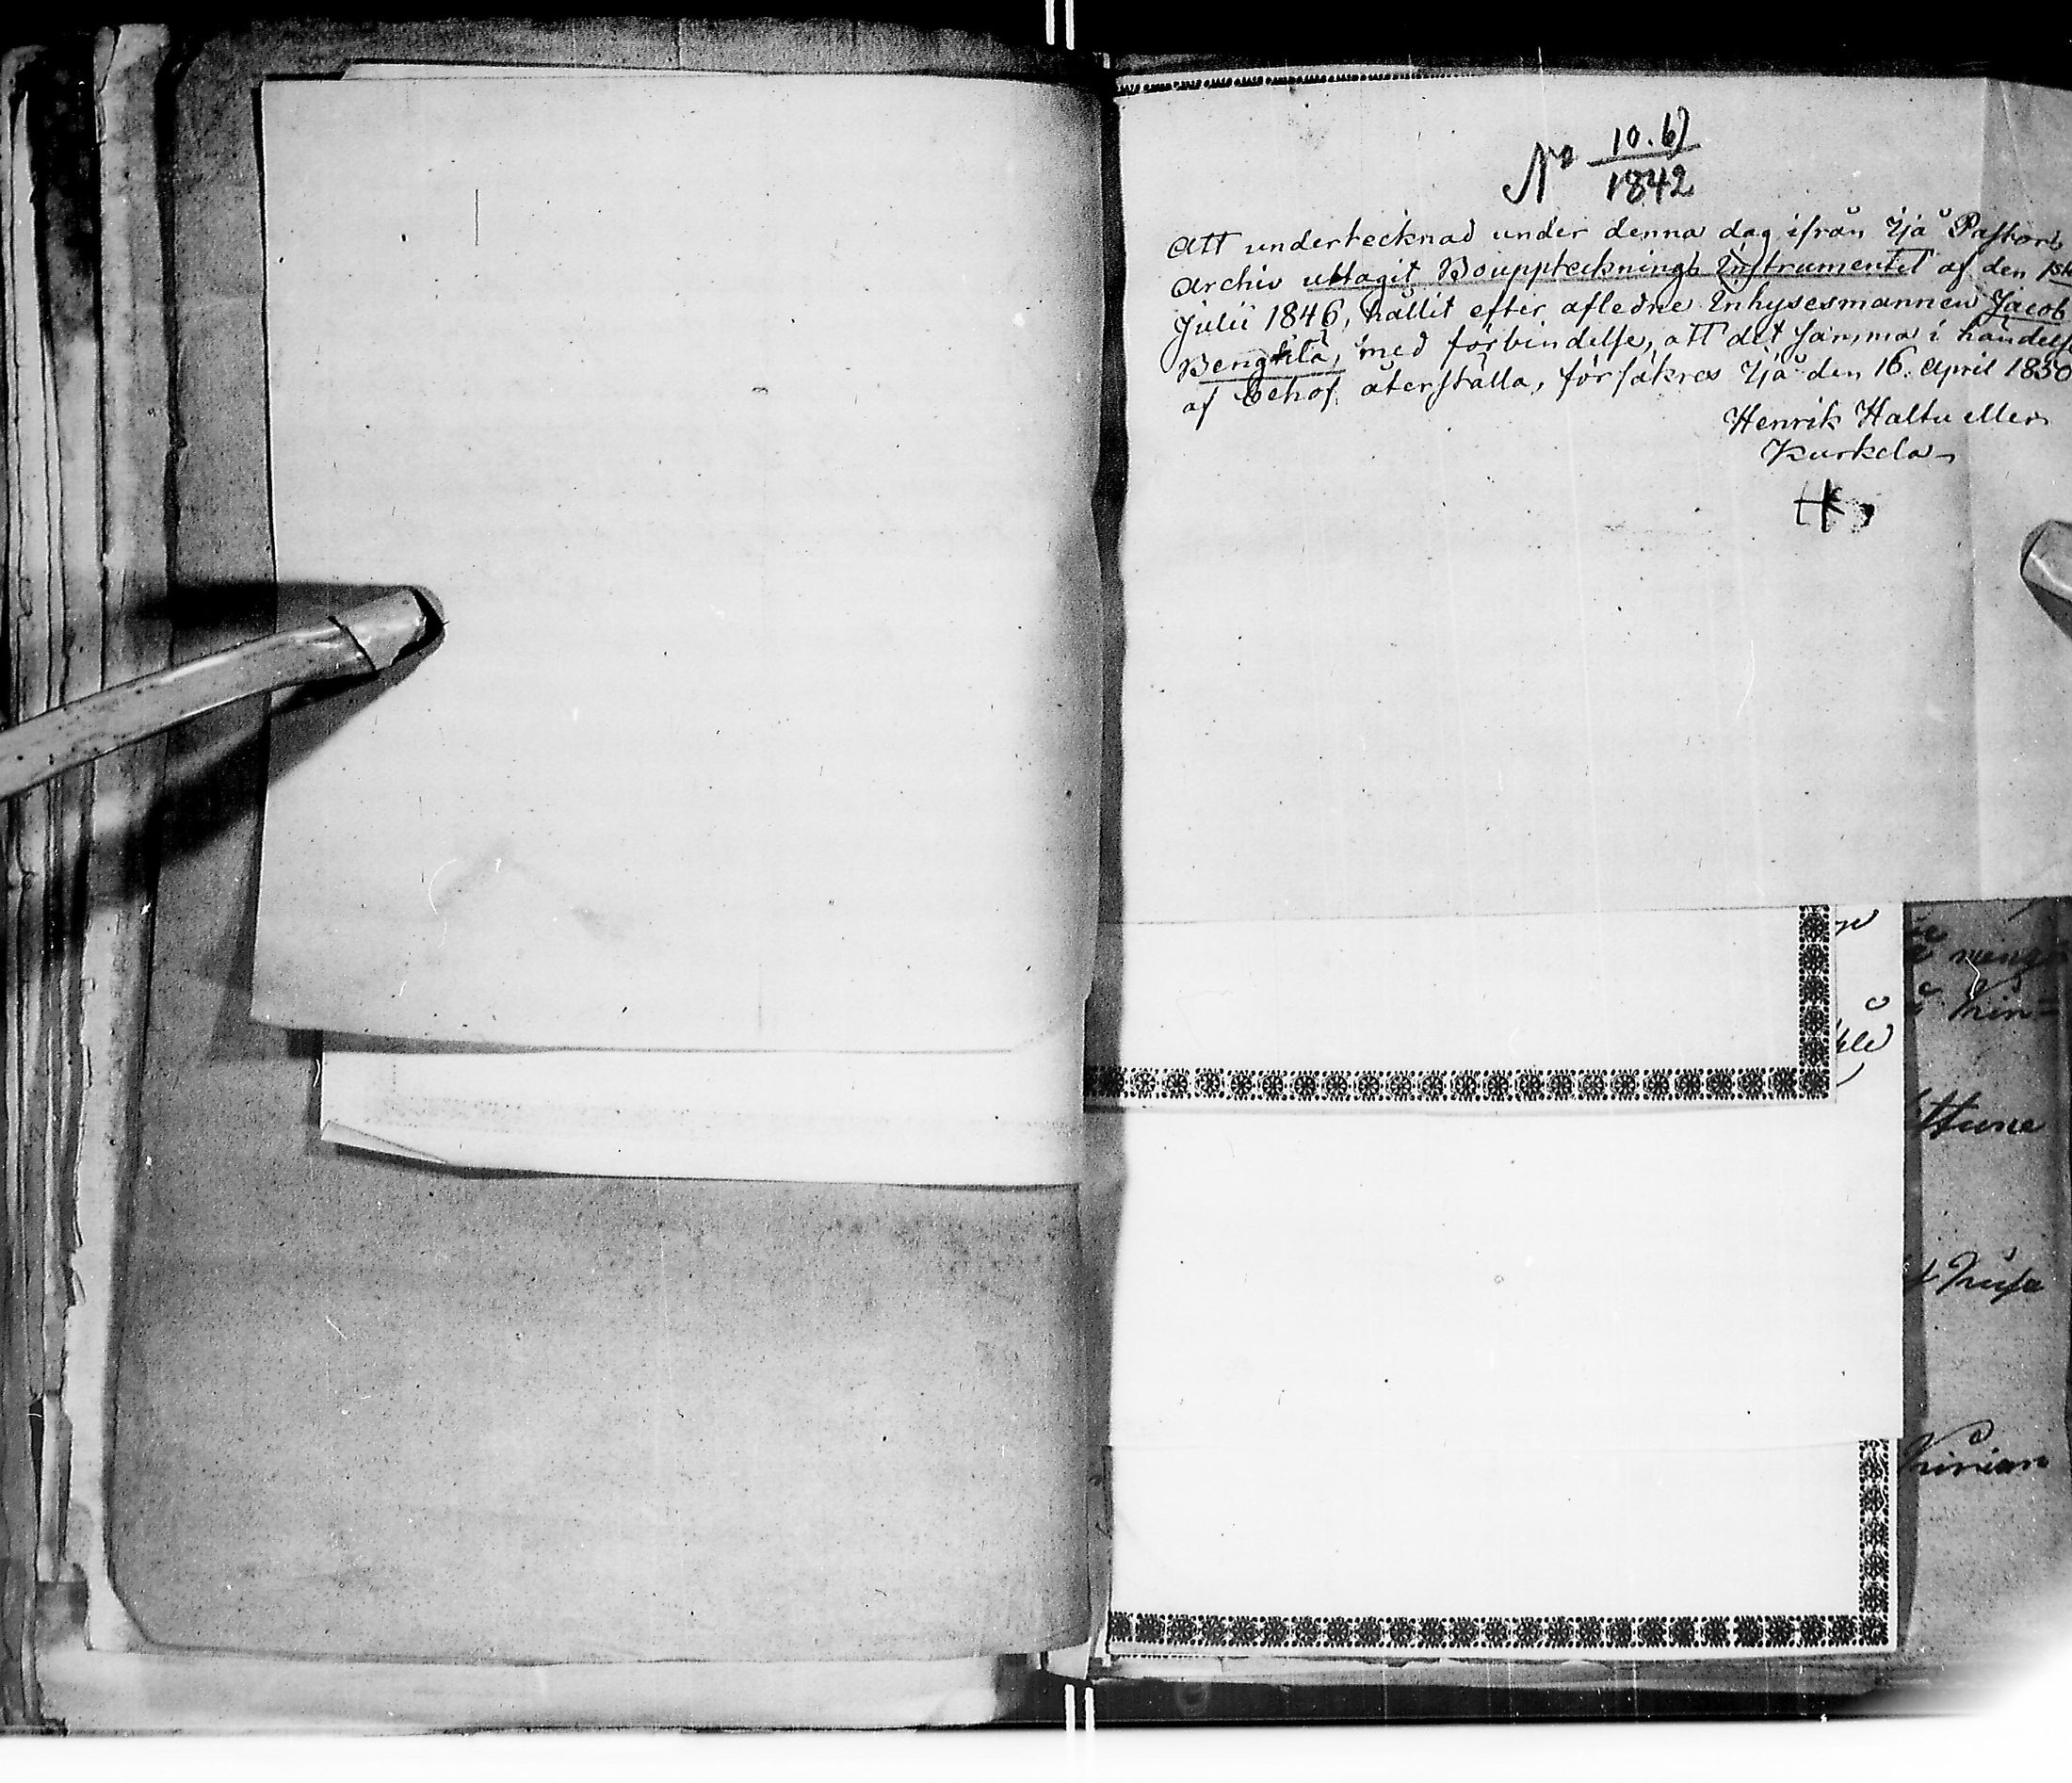 No 10.6)
1842
Att undertecknad under denna dag ifrån Ijå Pastors
Archiv uttagit Bouppteckningb Instrumentet af den 1sta
Julii 1846, hållit efter afledne Inhysesmannen Jacob
Bengtilä, med förbindelse, att det samma i händelse
af behof återställa, försäkras Ijå den 16. April 1850
Henrik Haltu eller
Kurkela
HK
ttune
Kinian